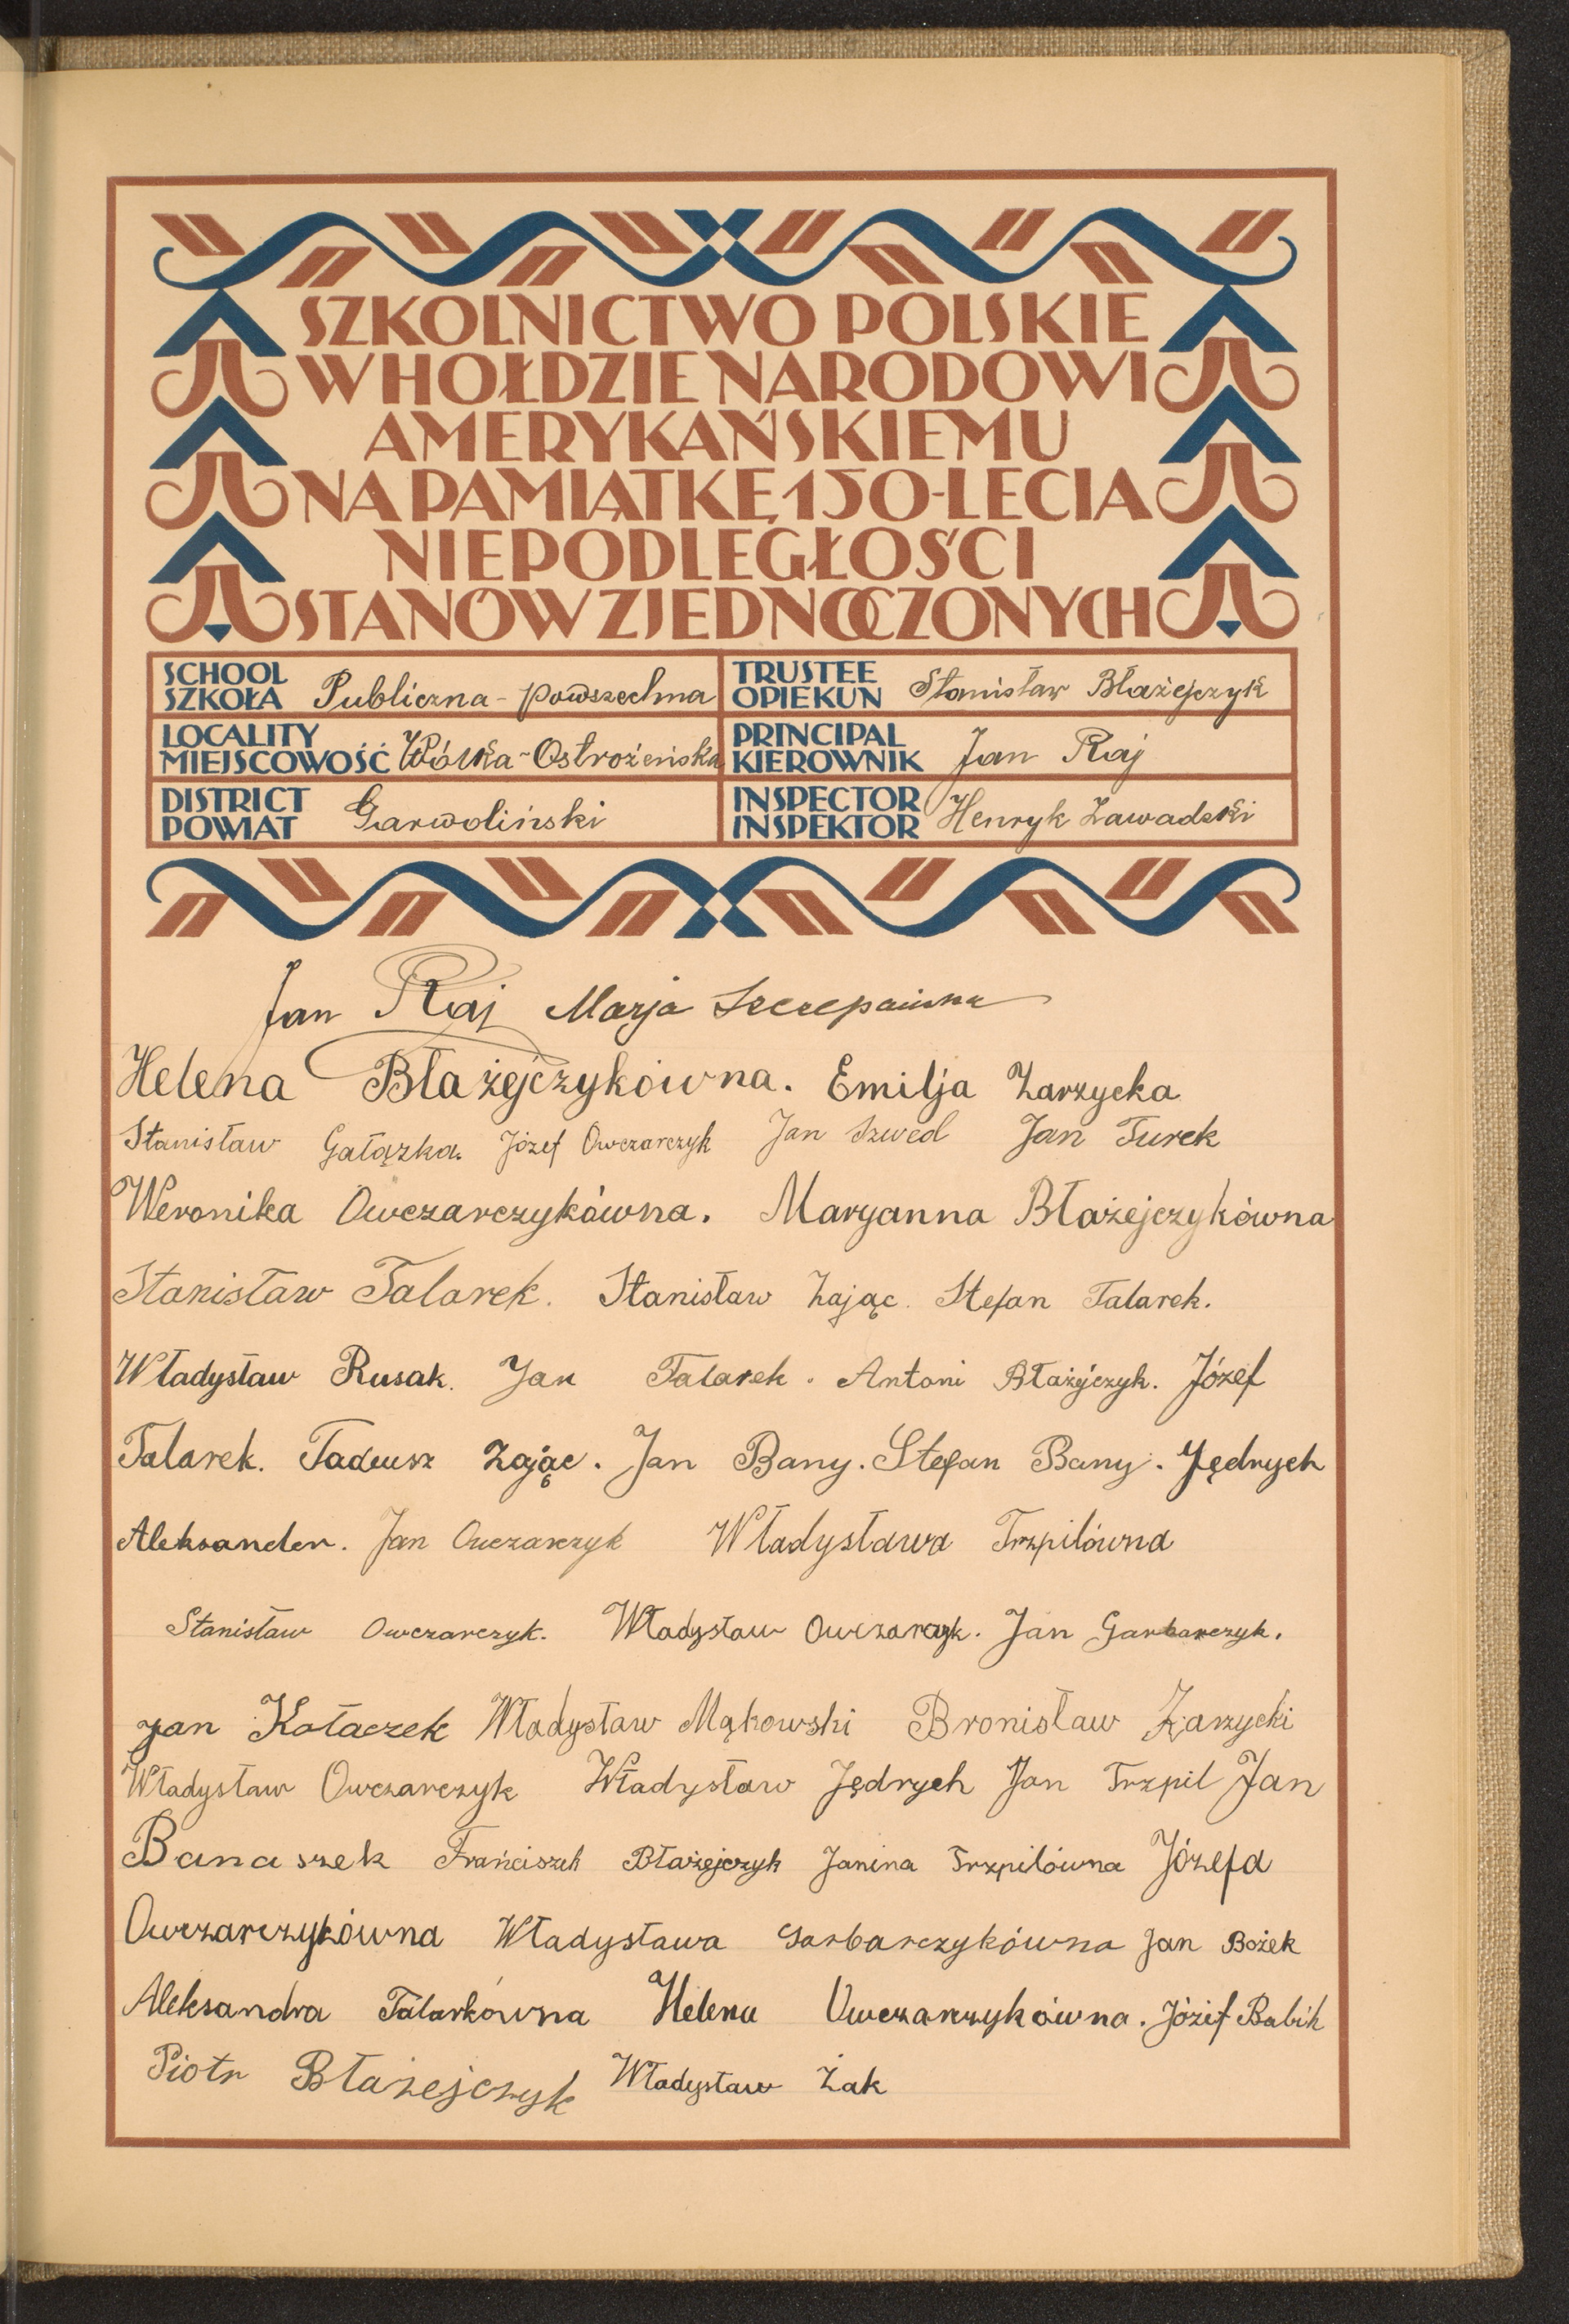 SZKOLNICTWO POLSKIE
W HOŁDZIE NARODOWI
AMERYKAŃSKIEMU
NA PAMIĄTKĘ 150-LECIA
NIEPODLEGŁOŚCI
STANÓW ZJEDNOCZONYCH
SCHOOL
SZKOŁA Publiczna - powszechna
TRUSTEE
OPIEKUN Stanisław Błażejczyk
LOCALITY
MIEJSCOWOŚĆ Wólka-Ostrożeńska
PRINCIPAL
KIEROWNIK Jan Raj
DISTRICT
POWIAT Garwoliński
INSPECTOR
INSPEKTOR Henryk Zawadzki
Jan Raj Marja Szczepańska
Helena Błażejczykówna. Emilja Zarzycka
Stanisław Gałązka. Józef Owczarczyk Jan Szwed Jan Turek
Weronika Owczarczykówna. Maryanna Błażejczykówna
Stanisław Talarek. Stanisław Zając. Stefan Talarek.
Władysław Rusak. Jan Talarek. Antoni Błażyczyk. Józef
Talarek. Tadeusz Zając. Jan Bany. Stefan Bany. Jędrych
Aleksander. Jan Owczarczyk Władysława Trzpilówna
Stanisław Owczarczyk. Władysław Owczarczyk. Jan Garbarczyk.
Jan Kołaczek Władysław Mąkowski Bronisław Zarzycki
Władysław Owczarczyk Władysław Jędrych Jan Trzpil Jan
Banaszek Frańciszek Błażejczyk Janina Trzpilówna Józefa
Owczarczykówna Władysława Garbarczykówna Jan Bożek
Aleksandra Talarkówna Helena Owczarczykówna. Józef Babik
Piotr Błażejczyk Władysław Żak